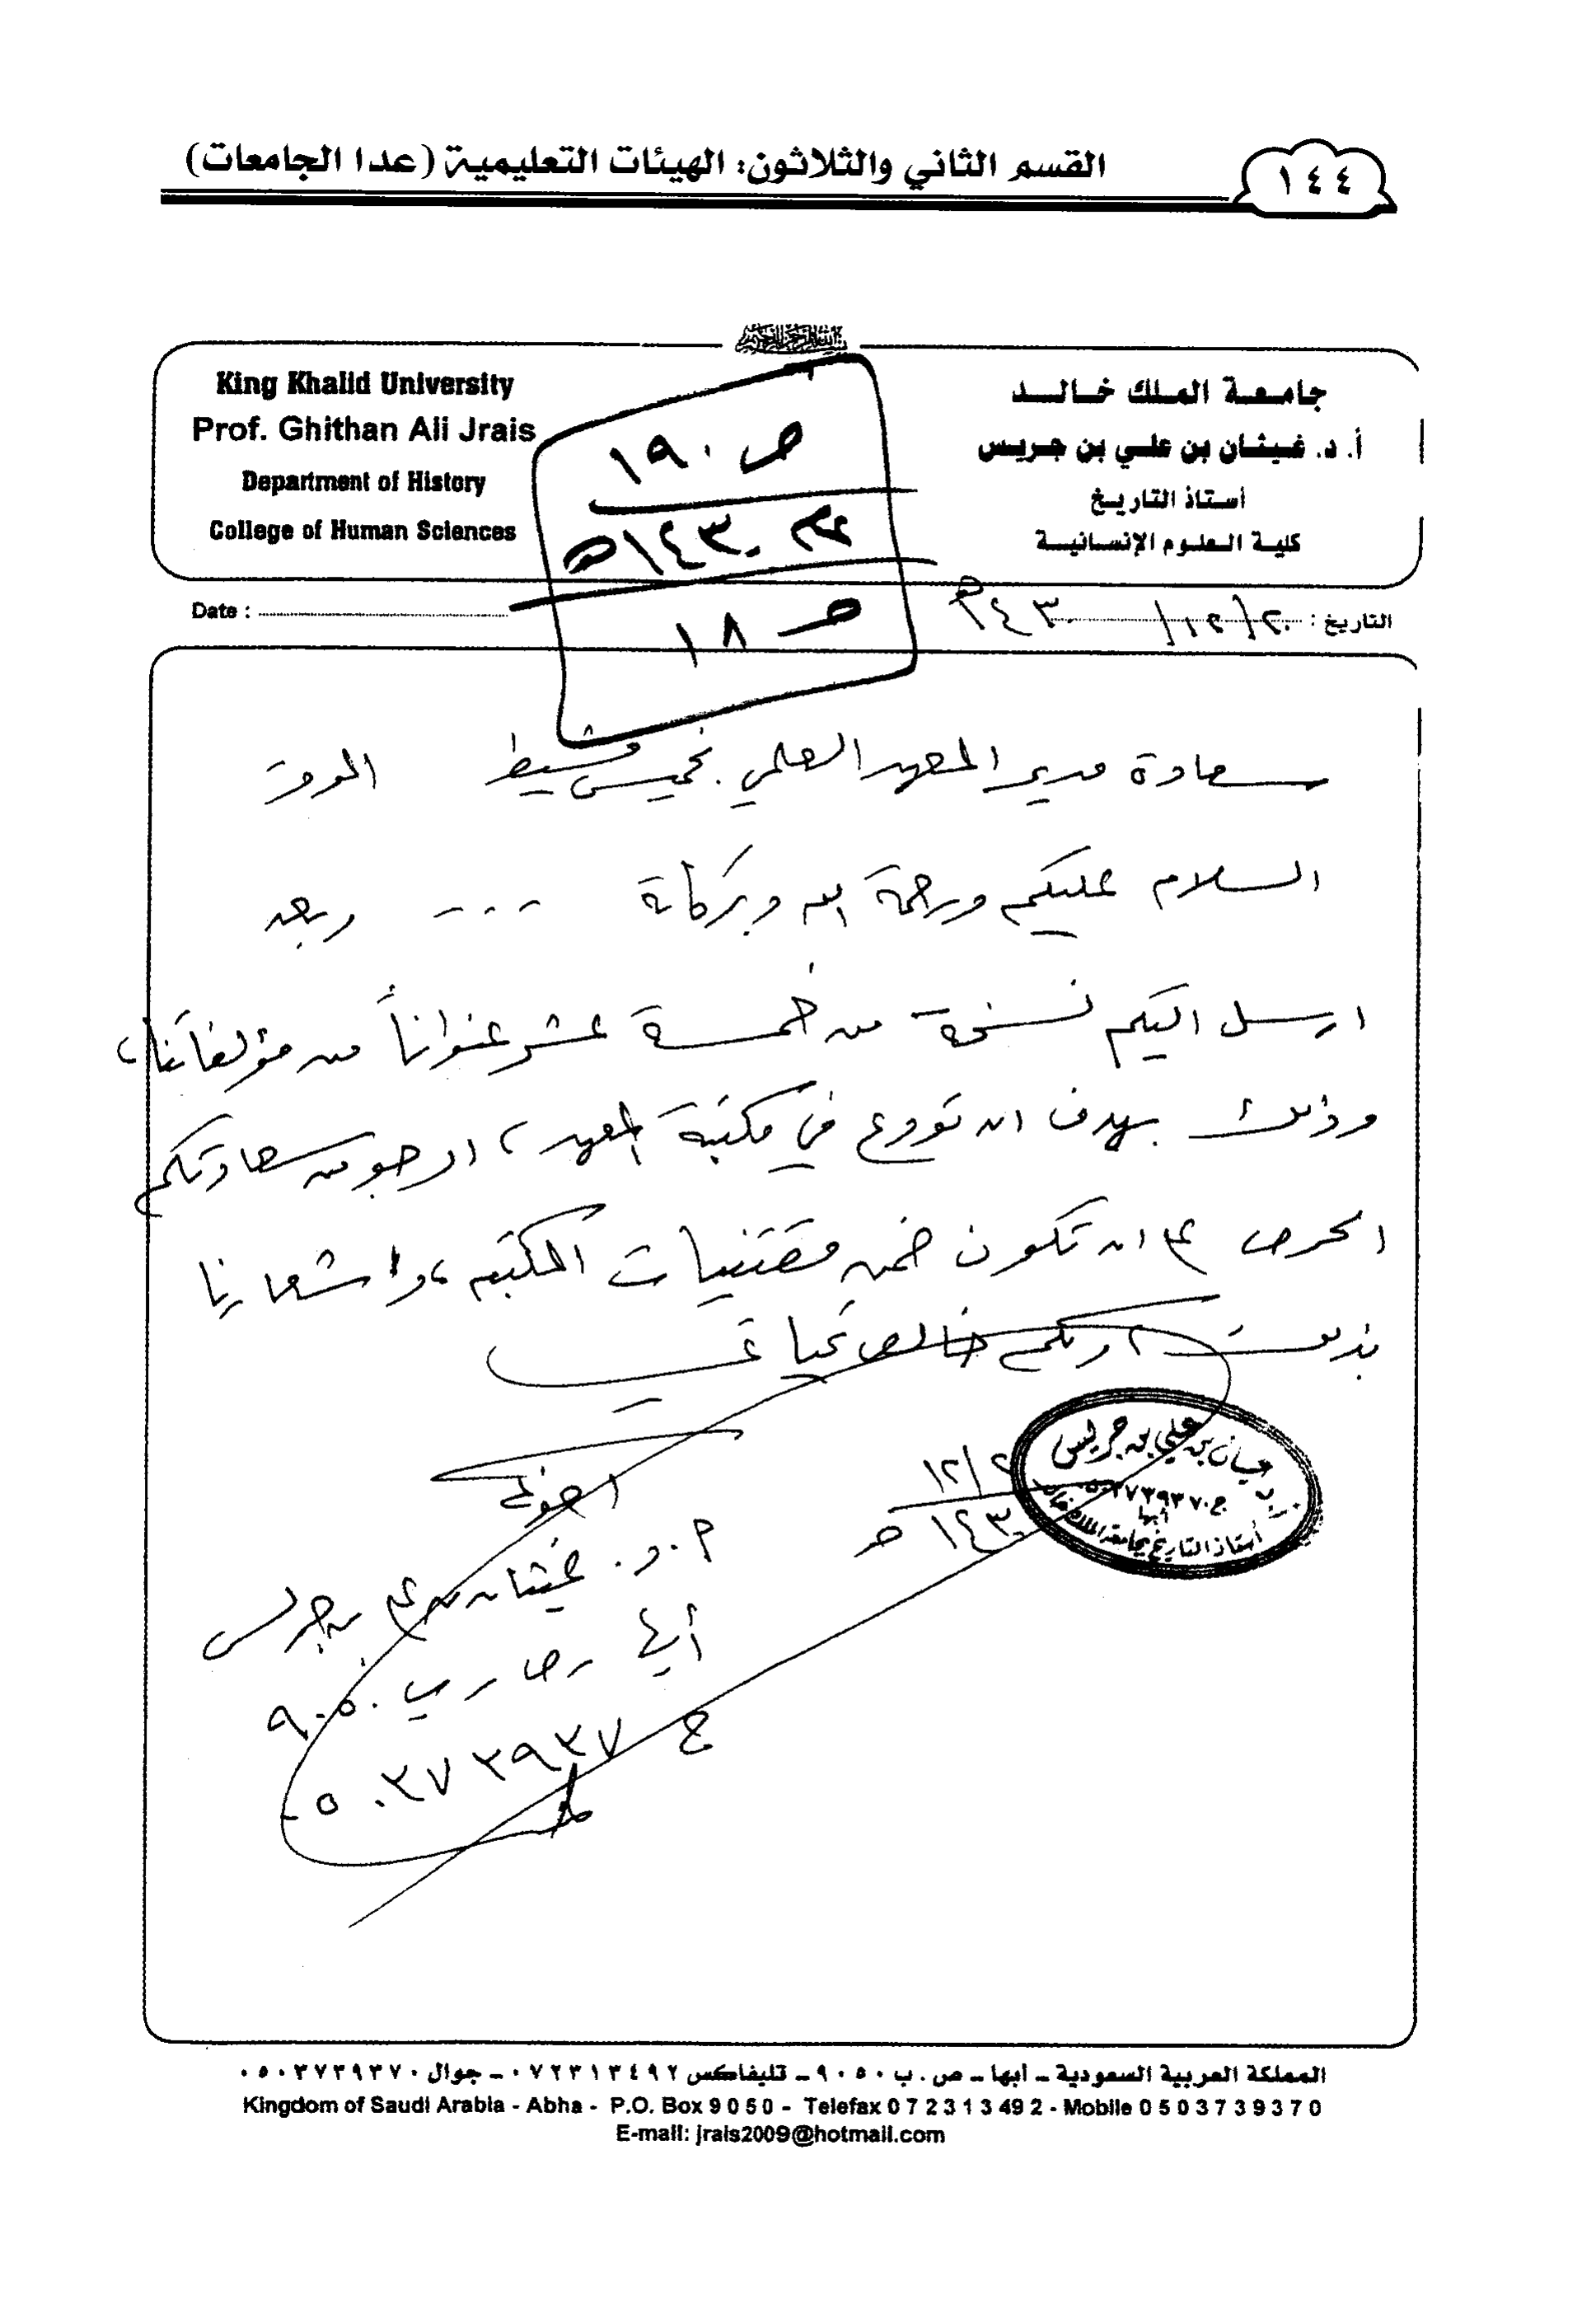 القسم الثاني والثلاثون: الهيئات التعليمية (عدا الجامعات)
١٤٤
بسم الله الرحمن الرحيم
جامعة الملك خالد
أ. د. غيثان بن علي بن جريس
أستاذ التاريخ
كلية العلوم الإنسانية
King Khalid University
Prof. Ghithan Ali Jrais
Department of History
College of Human Sciences
ص ١٩٠
١٤٣٠هـ
ص ١٨
التاريخ : ٢٠/ ١٢/ ١٤٣٠هـ
Date :
سعادة مدير المعهد العلمي بخميس مشيط الموقر
السلام عليكم ورحمة الله وبركاتة --- وبعد
ارسل اليكم نسخة من خمسة عشر عنواناً من مؤلفاتنا،
وذلك بهدف ان تودع في مكتبة المعهد، ارجو من سعادتكم
الحرص على ان تكون ضمن مقتنيات المكتبه، واشعارنا
بذلك، ولكم خالص تحياتي
اخوكم
أ.د. غيثان بن علي بن جريس
أبها / ص / ب ٩٠٥٠
ج ٠٥٠٣٧٣٩٣٧
١٢/٢
١٤٣٠ هـ
بن علي بن جريس
أبها
أستاذ التاريخ بجامعة الملك خالد
المملكة العربية السعودية ـ أبها ـ ص . ب ٩٠٥٠ ـ تليفاكس ٠٧٢٣١٣٤٩٢ ـ جوال ٠٥٠٣٧٣٩٣٧٠
Kingdom of Saudi Arabia - Abha - P.O. Box 9 0 5 0 - Telefax 0 7 2 3 1 3 49 2 - Mobile 0 5 0 3 7 3 9 3 7 0
E-mail: jrais2009@hotmail.com